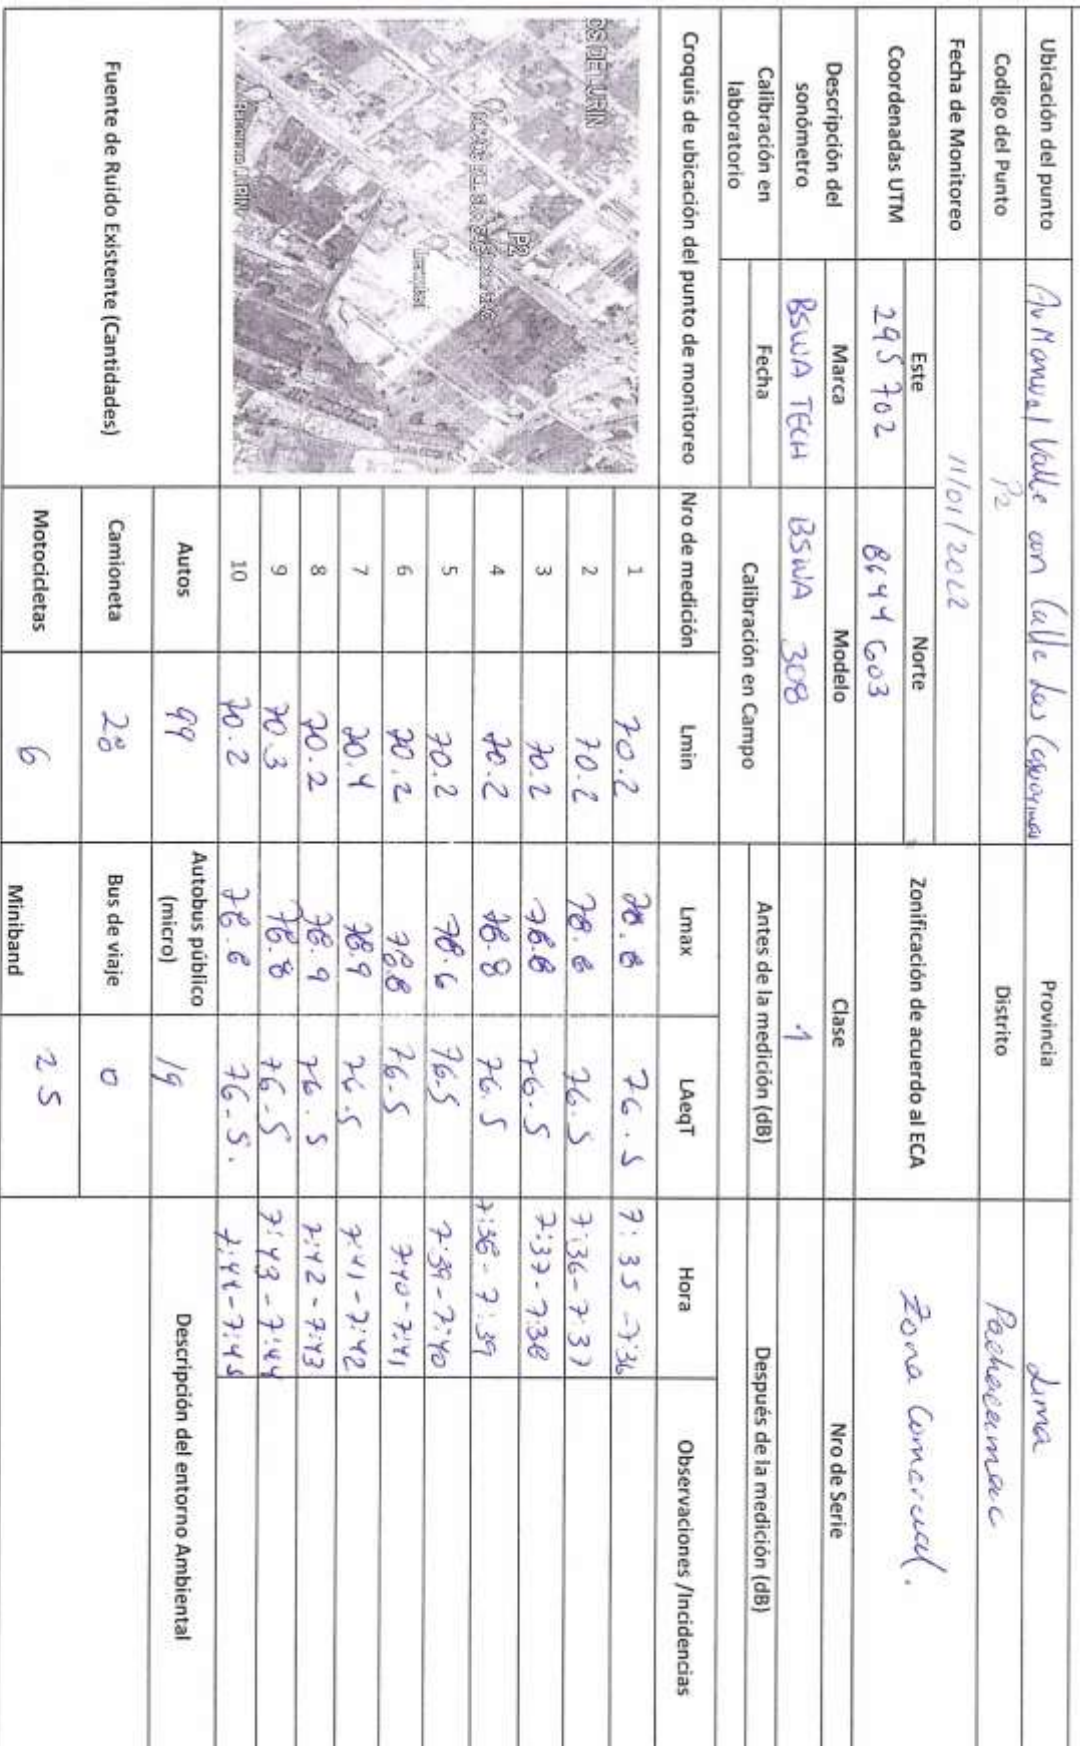 Ubicación del punto Av Manuel Valle con Calle Las Provincia Lima
Codigo del Punto P2 Distrito Pachacamac
Fecha de Monitoreo 11/01/2022
Coordenadas UTM Este Norte Zonificación de acuerdo al ECA Zona Comercial.
295 702 8644 603
Descripción del sonómetro Marca Modelo Clase Nro de Serie
BSWA TECH BSWA 308 1
Calibración en laboratorio Fecha Calibración en Campo Antes de la medición (dB) Después de la medición (dB)
Croquis de ubicación del punto de monitoreo Nro de medición Lmin Lmax LAeqT Hora Observaciones /Incidencias
OS DE LURIN
P2
1 70.2 78.8 76.5 7:35 -7:36
2 70.2 78.8 76.5 7:36-7:37
3 70.2 78.8 76.5 7:37-7:38
4 70.2 78.8 76.5 7:38 - 7:39
5 70.2 78.6 76.5 7:39-7:40
6 70.2 78.8 76.5 7:40-7:41
7 70.4 78.9 76.5 7:41-7:42
8 70.2 78.9 76.5 7:42-7:43
9 70.3 78.8 76.5 7:43-7:44
10 70.2 78.8 76.5. 7:44-7:45
Fuente de Ruido Existente (Cantidades) Autos 99 Autobus público (micro) 19 Descripción del entorno Ambiental
Camioneta 28 Bus de viaje 0
Motocicletas 6 Miniband 25